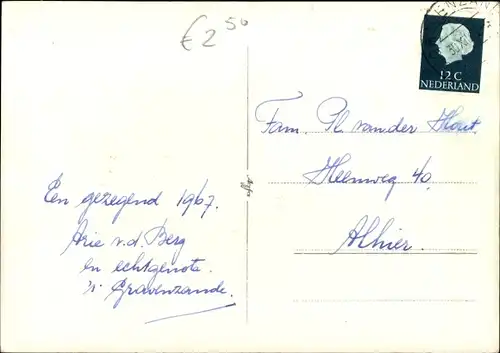 € 2 50
12 C
NEDERLAND
Fam. Pl. van der Hout.
Heenweg 40.
Alhier.
Een gezegend 1967.
Arie v.d. Berg
en echtgenote.
's Gravenzande.